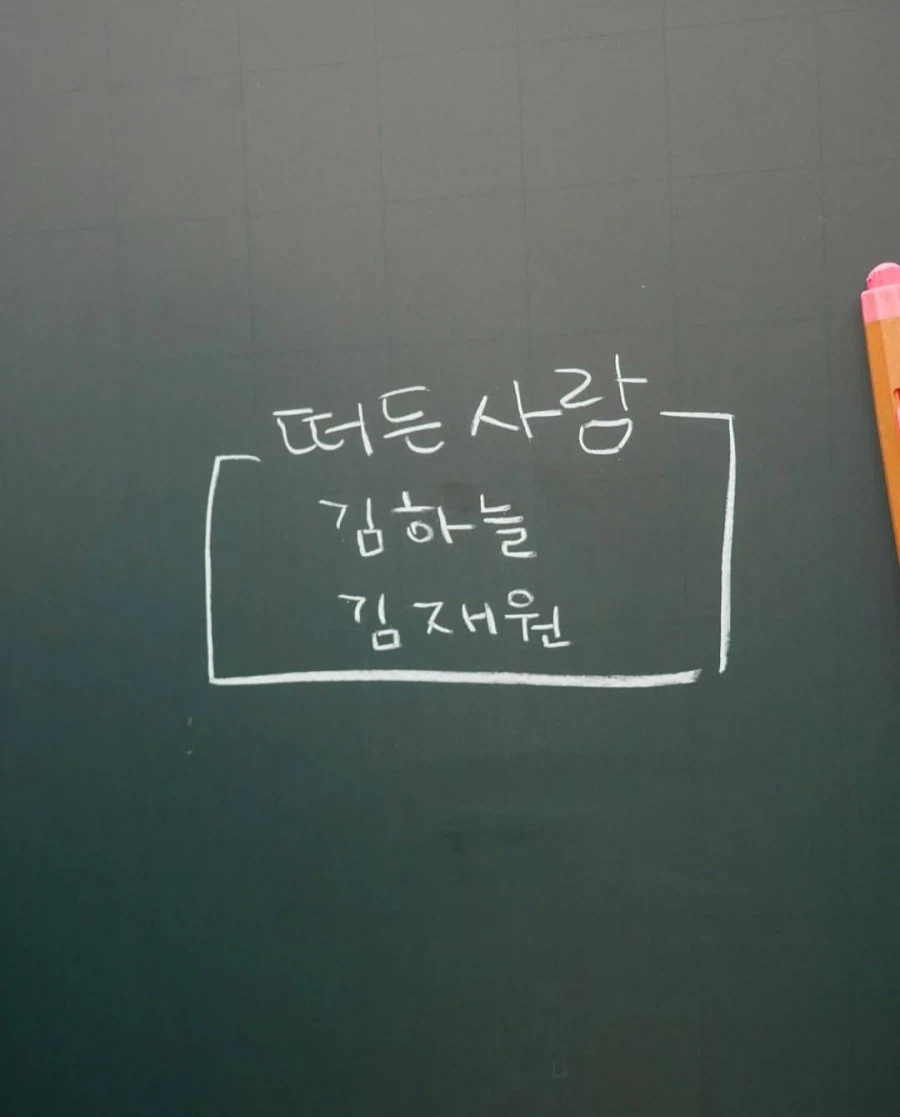 떠든 사람
김하늘
김재원